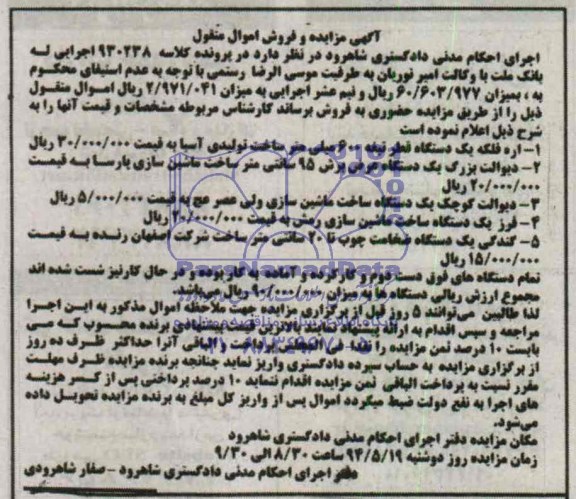 آگهی مزایده و فروش اموال منقول
اجرای احکام مدنی دادگستری شاهرود در نظر دارد در پرونده کلاسه ۹۳۰۲۳۸ اجرایی له
بانک ملت با وکالت امیر نوریان به طرفیت موسی الرضا رستمی با توجه به عدم استیفای محکوم
به ، بمیزان ۶۰/۶۰۳/۹۷۷ ریال و نیم عشر اجرایی به میزان ۲/۹۷۱/۰۴۱ ریال اموال منقول
ذیل را از طریق مزایده حضوری به فروش برساند کارشناس مربوطه مشخصات و قیمت آنها را به
شرح ذیل اعلام نموده است
۱- اره فلکه یک دستگاه قطر تیغه ۶۰۰ میلی متر ساخت تولیدی آسیا به قیمت ۳۰/۰۰۰/۰۰۰ ریال
۲- دیوالت بزرگ یک دستگاه عرض برش ۹۵ سانتی متر ساخت ماشین سازی پارسا به قیمت
۲۰/۰۰۰/۰۰۰ ریال
۳- دیوالت کوچک یک دستگاه ساخت ماشین سازی ولی عصر عج به قیمت ۵/۰۰۰/۰۰۰ ریال
۴- فرز یک دستگاه ساخت ماشین سازی رمش به قیمت ۲۰/۰۰۰/۰۰۰ ریال
۵- گندگی یک دستگاه ضخامت چوب تا ۲۰ سانتی متر ساخت شرکت اصفهان رنده به قیمت
۱۵/۰۰۰/۰۰۰ ریال
تمام دستگاه های فوق دست دوم و کارکرده، آماده به کار بوده و در حال کار نیز شست شده اند
ParsNamadData
مجموع ارزش ریالی دستگاه ها به میزان ۹۰/۰۰۰/۰۰۰ ریال می‌باشد.
لذا طالبین می‌توانند ۵ روز قبل از برگزاری مزایده جهت ملاحظه اموال مذکور به این اجرا
مراجعه و سپس اقدام به برنده محسوب که می
بایست ۱۰ درصد ثمن مزایده را نقدا الباقی آنرا حداکثر ظرف ده روز
از برگزاری مزایده به حساب سپرده دادگستری واریز نماید چنانچه برنده مزایده ظرف مهلت
مقرر نسبت به پرداخت الباقی ثمن مزایده اقدام ننماید ۱۰ درصد پرداختی پس از کسر هزینه
های اجرا به نفع دولت ضبط میگردد اموال پس از واریز کل مبلغ به برنده مزایده تحویل داده
می‌شود.
مکان مزایده دفتر اجرای احکام مدنی دادگستری شاهرود
زمان مزایده روز دوشنبه ۹۴/۵/۱۹ ساعت ۸/۳۰ الی ۹/۳۰
دفتر اجرای احکام مدنی دادگستری شاهرود - صفار شاهرودی